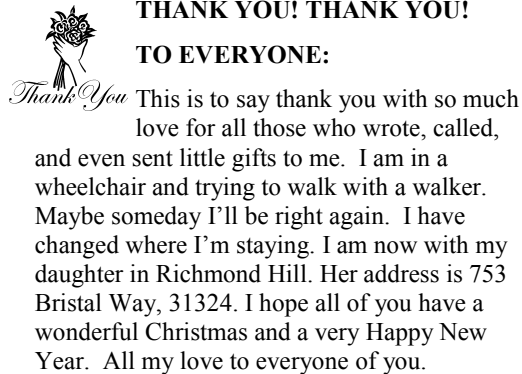 THANK YOU! THANK YOU!
TO EVERYONE:
Thank You
This is to say thank you with so much
love for all those who wrote, called,
and even sent little gifts to me.  I am in a
wheelchair and trying to walk with a walker.
Maybe someday I’ll be right again.  I have
changed where I’m staying. I am now with my
daughter in Richmond Hill. Her address is 753
Bristal Way, 31324. I hope all of you have a
wonderful Christmas and a very Happy New
Year.  All my love to everyone of you.